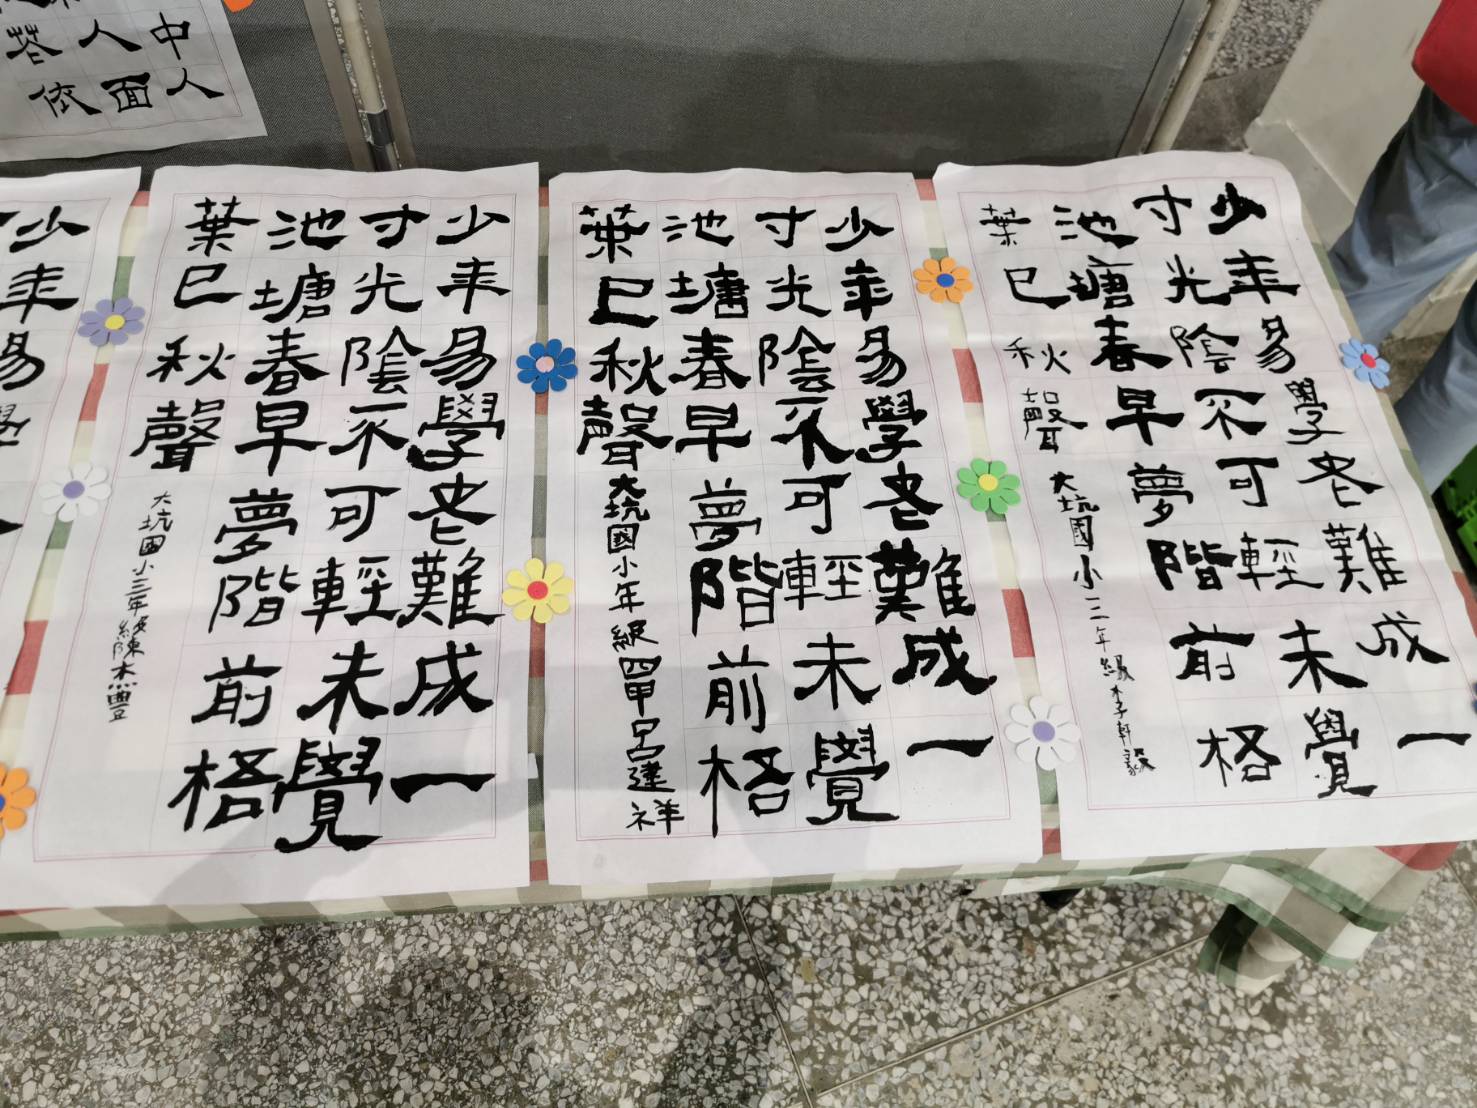 中人
人面
依
少年易學
少年易學老難成一
寸光陰不可輕未覺
池塘春早夢階前格
葉已秋聲
大坑國小三年級陳杰豐
少年易學老難成一
寸光陰不可輕未覺
池塘春早夢階前格
葉已秋聲
大坑國小年級四甲呂建祥
少年易學老難成一
寸光陰不可輕未覺
池塘春早夢階前格
葉已秋聲
大坑國小三年級李軒毅